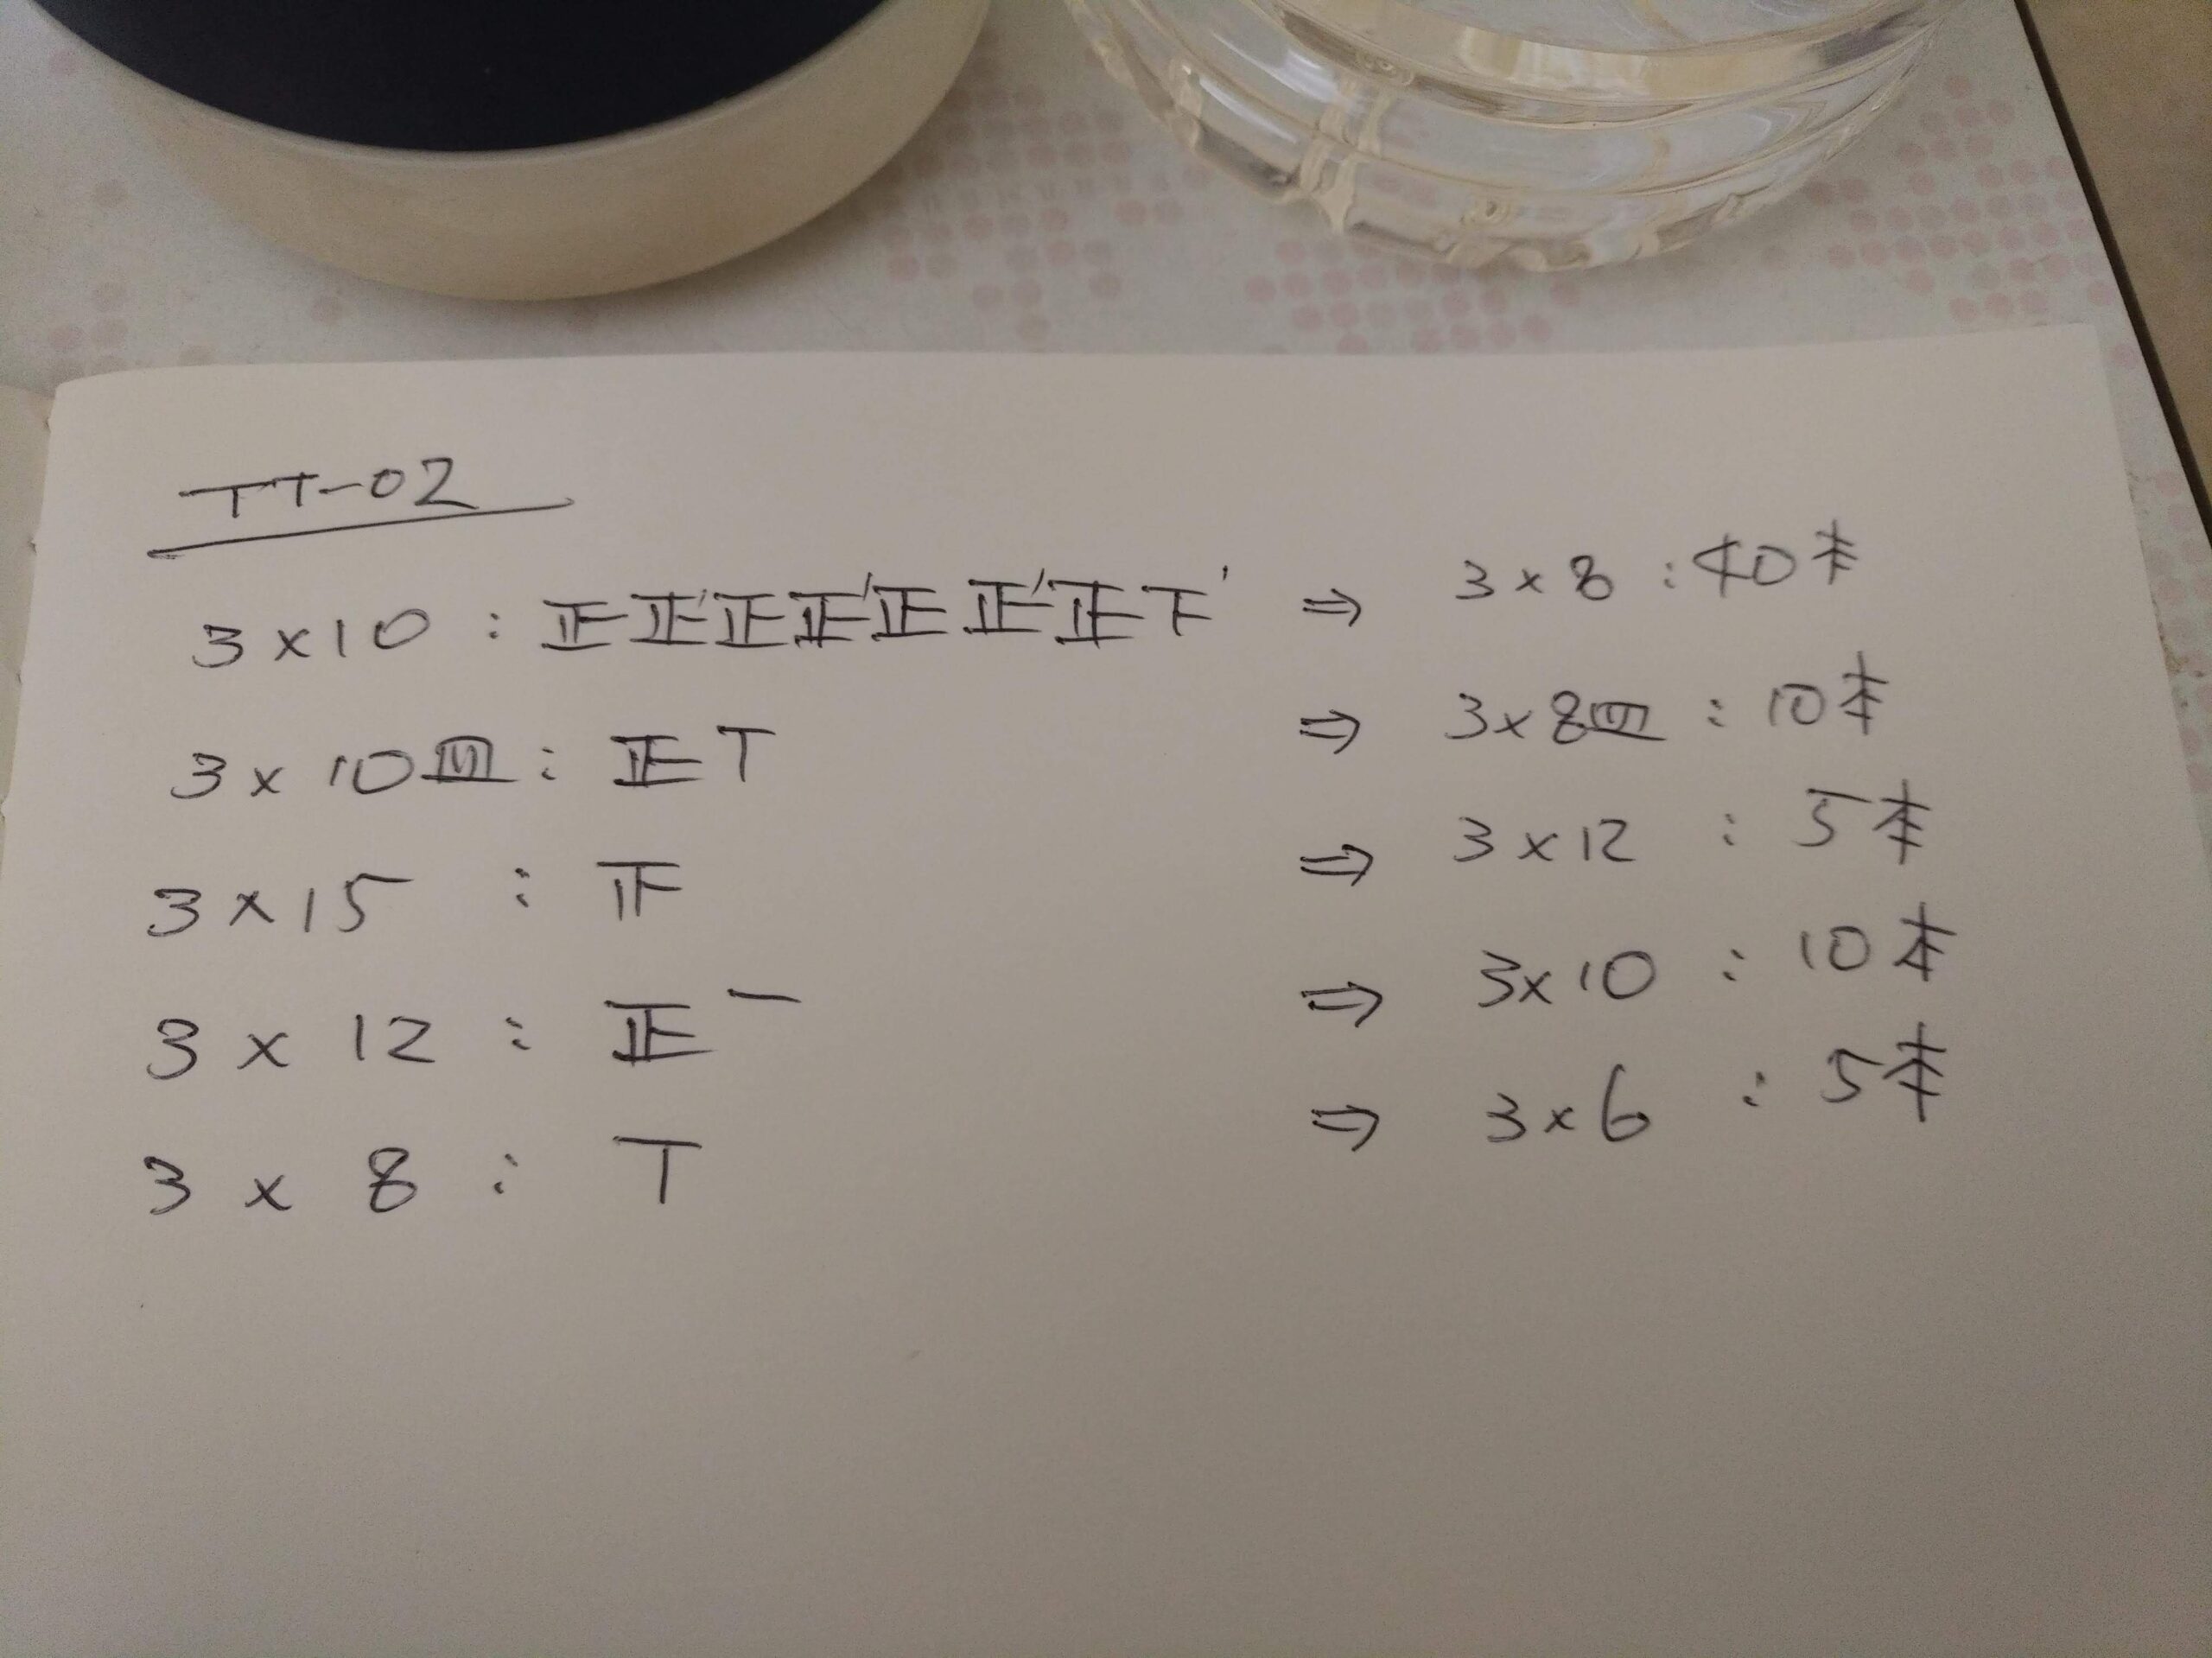 TT-02
3×10 : 正正正正正正正下 ⇒ 3×8 : 40本
3×10皿 : 正T ⇒ 3×8皿 : 10本
3×15 : 正 ⇒ 3×12 : 5本
3×12 : 正一 ⇒ 3×10 : 10本
3×8 : T ⇒ 3×6 : 5本